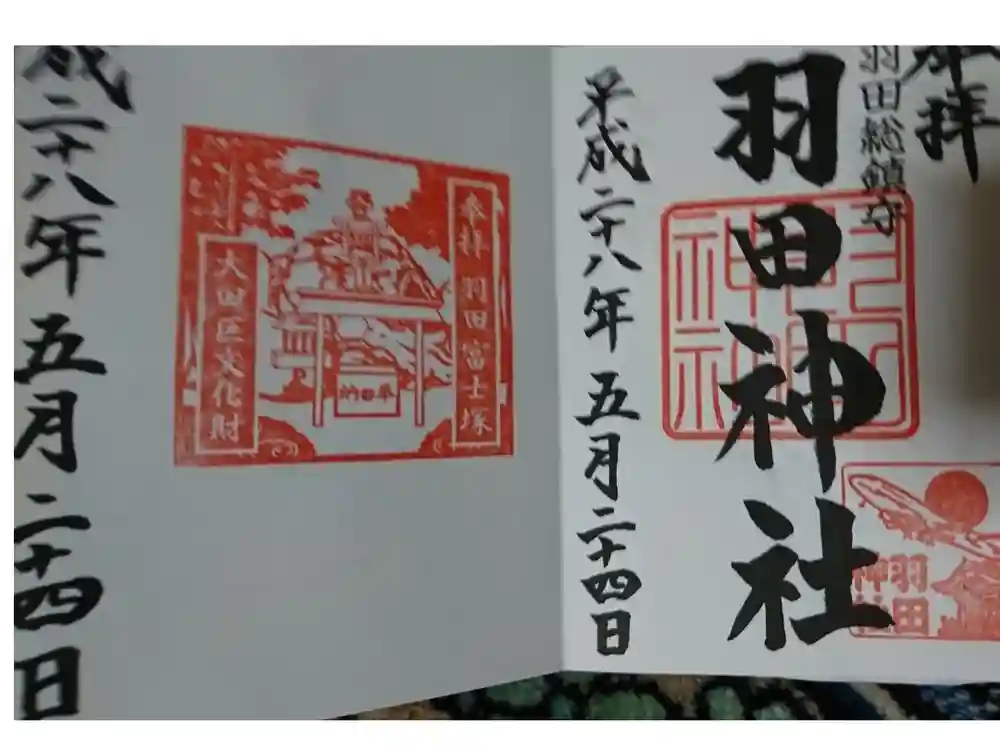 奉拝
羽田総鎮守
羽田神社
羽田
神社
平成二十八年五月二十四日
奉拝 羽田富士塚
奉田納
大田区文化財
成二十八年五月二十四日